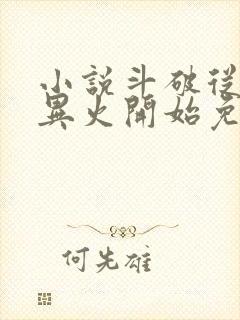 小說斗破從
異火開始免
何先雄